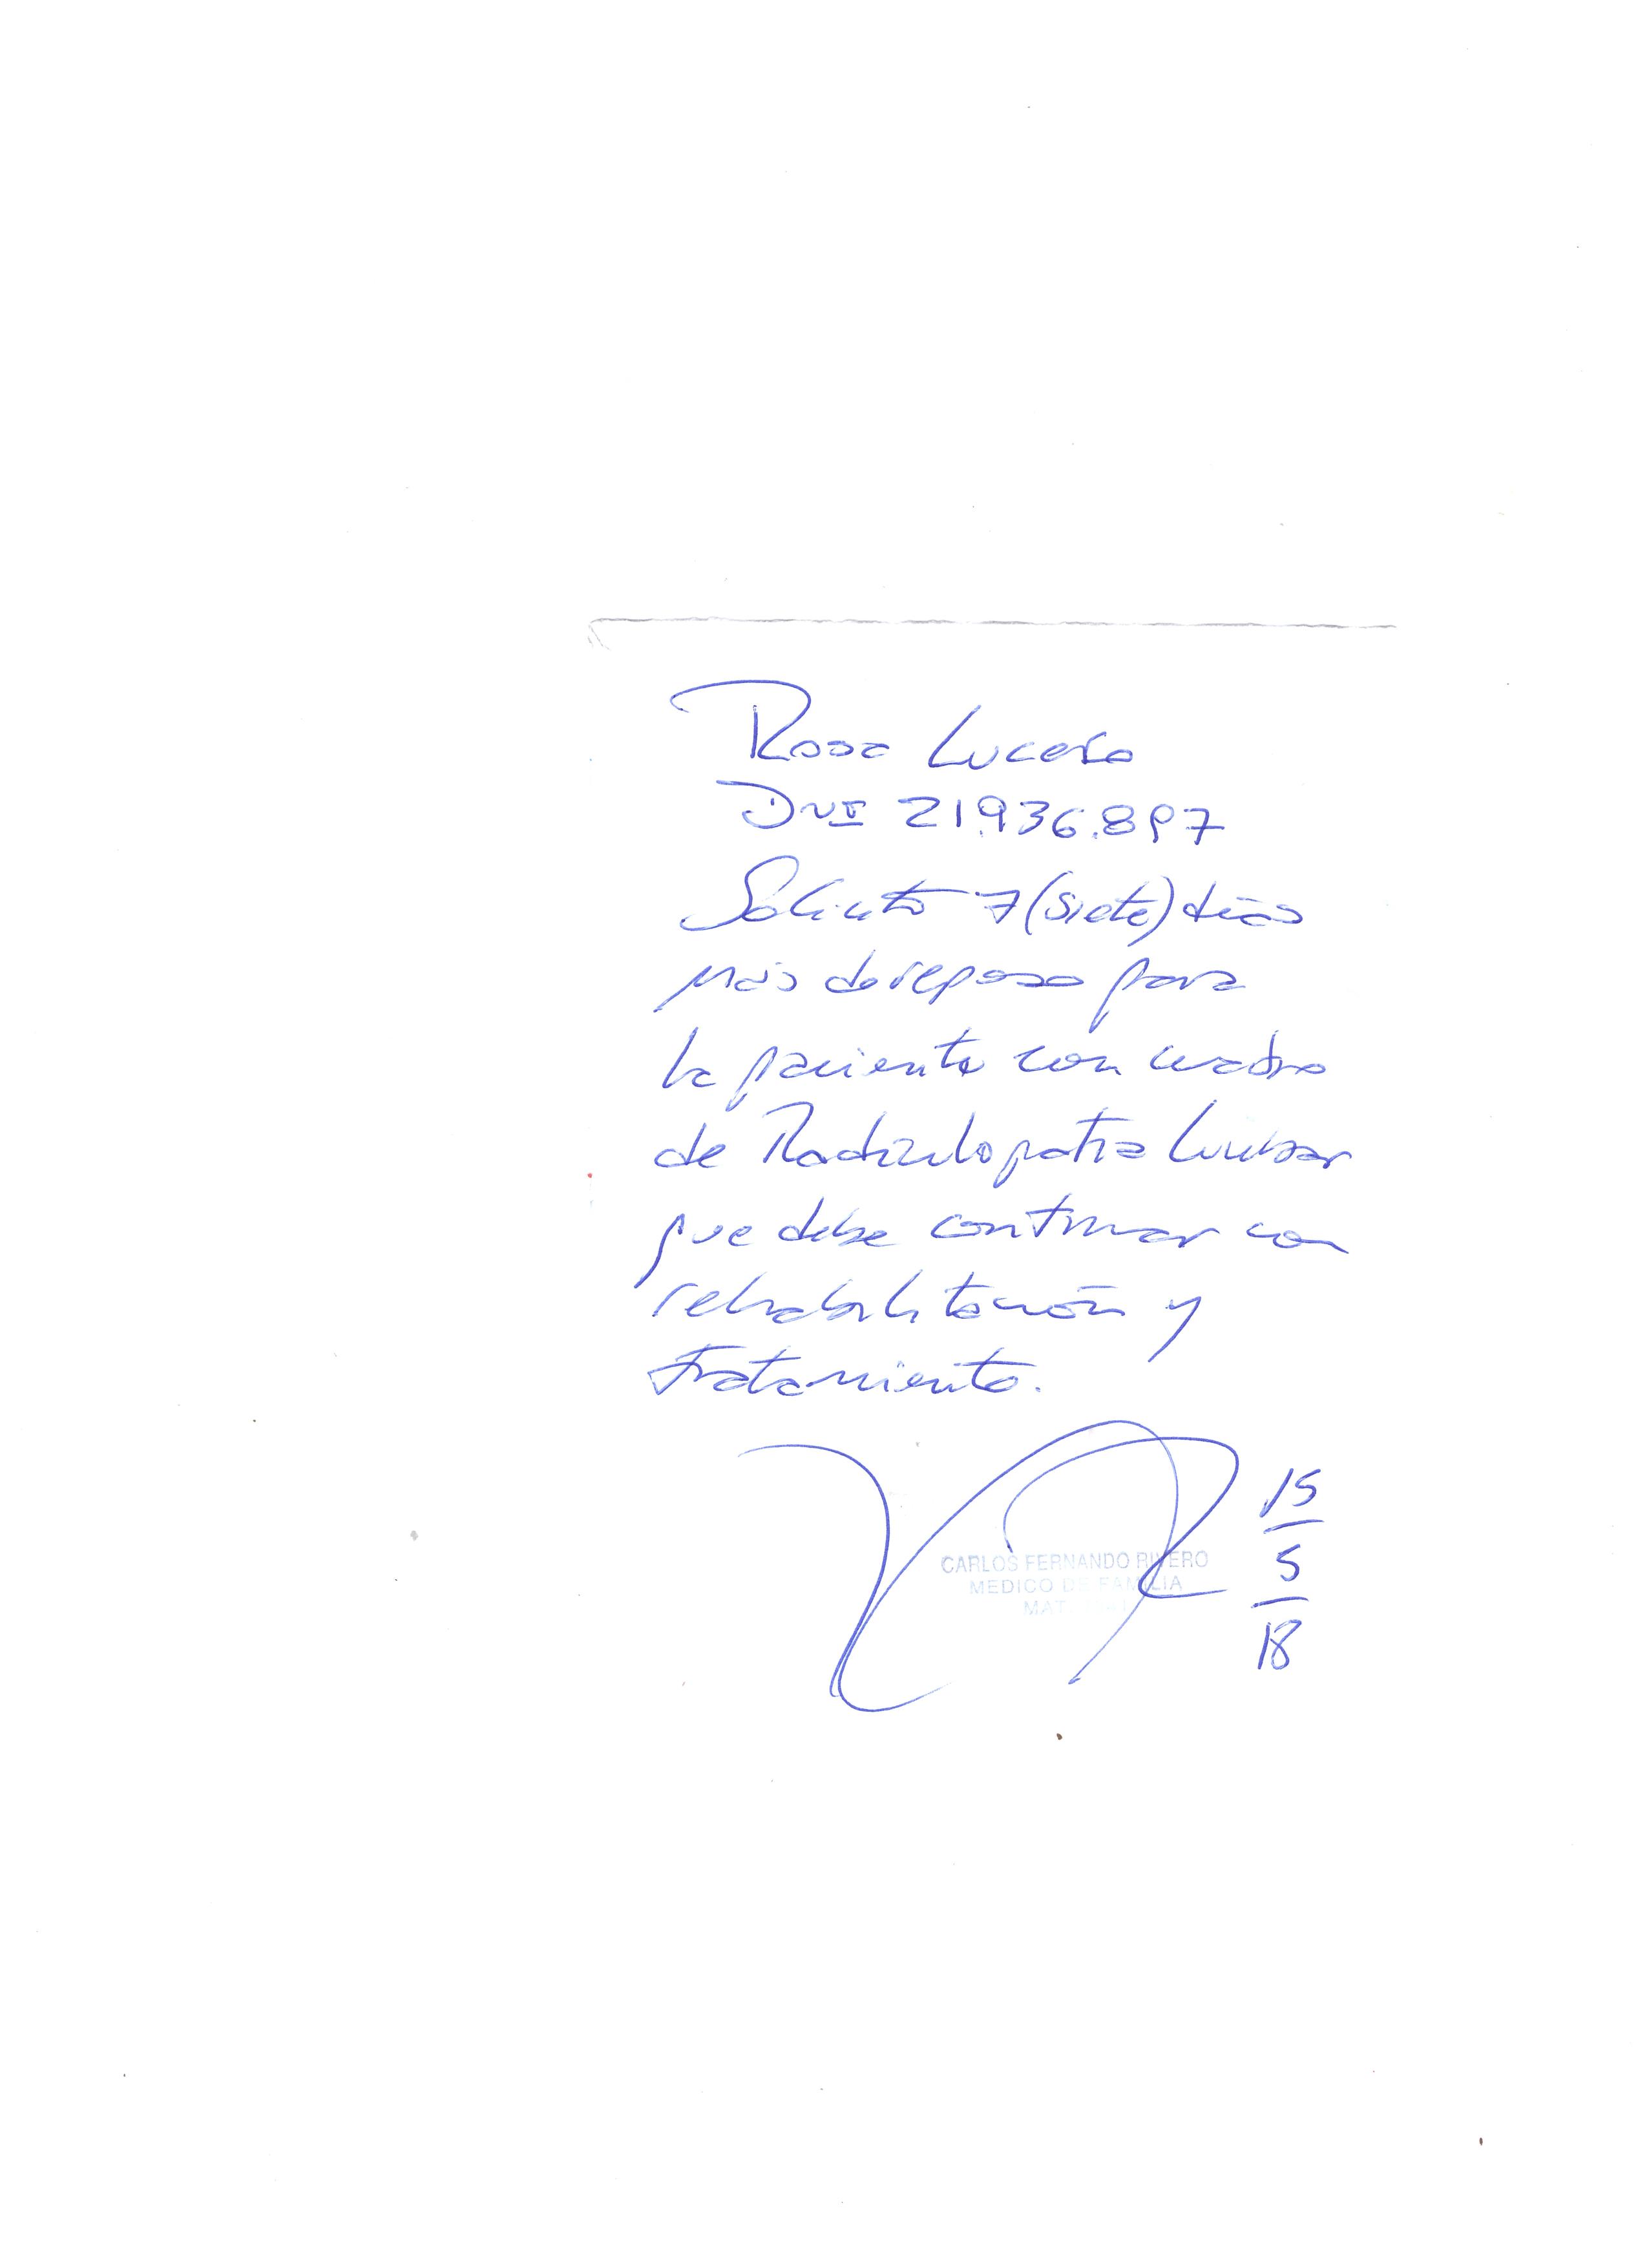 Rosa Lucero
DNI 21.936.897
Solicito 7 (siete) días
más de reposo para
la paciente con cuadro
de Radiculopatia Lumbar
que debe continuar con
rehabilitación y
tratamiento.
CARLOS FERNANDO RIVERO
MEDICO DE FAMILIA
MAT
15
5
18